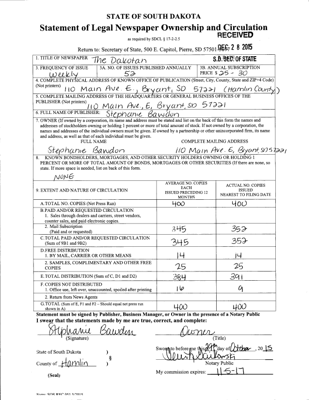 STATE OF SOUTH DAKOTA
Statement of Legal Newspaper Ownership and Circulation
as required by SDCL § 17-2-2.5
RECEIVED
Return to: Secretary of State, 500 E. Capitol, Pierre, SD 57501
DEC 28 2015
S.D. SEC. OF STATE
1. TITLE OF NEWSPAPER The Dakotan
2. FREQUENCY OF ISSUE Weekly
3A. NO. OF ISSUES PUBLISHED ANNUALLY 52
3B. ANNUAL SUBSCRIPTION PRICE $ 25 - 30
4. COMPLETE PHYSICAL ADDRESS OF KNOWN OFFICE OF PUBLICATION (Street, City, County, State and ZIP+4 Code)
(Not printers) 110 Main Ave E, Bryant, SD 57221 (Hamlin County)
5. COMPLETE MAILING ADDRESS OF THE HEADQUARTERS OR GENERAL BUSINESS OFFICES OF THE
PUBLISHER (Not printers) 110 Main Ave, E, Bryant, SD 57221
6. FULL NAME OF PUBLISHER: Stephanie Bawdon
7. OWNER (If owned by a corporation, its name and address must be stated and list on the back of this form the names and
addresses of stockholders owning or holding 1 percent or more of total amount of stock. If not owned by a corporation, the
names and addresses of the individual owners must be given. If owned by a partnership or other unincorporated firm, its name
and address, as well as that of each individual must be given.
FULL NAME COMPLETE MAILING ADDRESS
Stephanie Bawdon 110 Main Ave. E, Bryant, SD 57221
8. KNOWN BONDHOLDERS, MORTGAGES, AND OTHER SECURITY HOLDERS OWNING OR HOLDING 1
PERCENT OR MORE OF TOTAL AMOUNT OF BONDS, MORTGAGES OR OTHER SECURITIES (If there are none, so
state. If more space is needed, list on back of this form.
NONE
9. EXTENT AND NATURE OF CIRCULATION
AVERAGE NO. COPIES EACH ISSUED PRECEDING 12 MONTHS
ACTUAL NO. COPIES ISSUED NEAREST TO FILING DATE
A. TOTAL NO. COPIES (Net Press Run) 400 400
B. PAID AND/OR REQUESTED CIRCULATION
1. Sales through dealers and carriers, street vendors,
counter sales, and paid electronic copies.
2. Mail Subscription
(Paid and or requested) 345 352
C. TOTAL PAID AND/OR REQUESTED CIRCULATION
(Sum of 9B1 and 9B2) 345 352
D. FREE DISTRIBUTION
1. BY MAIL, CARRIER OR OTHER MEANS 14 14
2. SAMPLES, COMPLIMENTARY AND OTHER FREE
COPIES 25 25
E. TOTAL DISTRIBUTION (Sum of C, D1 and D2) 384 391
F. COPIES NOT DISTRIBUTED
1. Office use, left over, unaccounted, spoiled after printing 16 9
2. Return from News Agents
G. TOTAL (Sum of E, F1 and F2 - Should equal net press run
shown in A) 400 400
Statement must be signed by Publisher, Business Manager, or Owner in the presence of a Notary Public
I swear that the statements made by me are true, correct, and complete:
Stephanie Bawdon Owner
(Signature) (Title)
State of South Dakota )
§
County of Hamlin )
Sworn to before me this day of October, 2015
Notary Public
(Seal)
My commission expires: 11-5-17